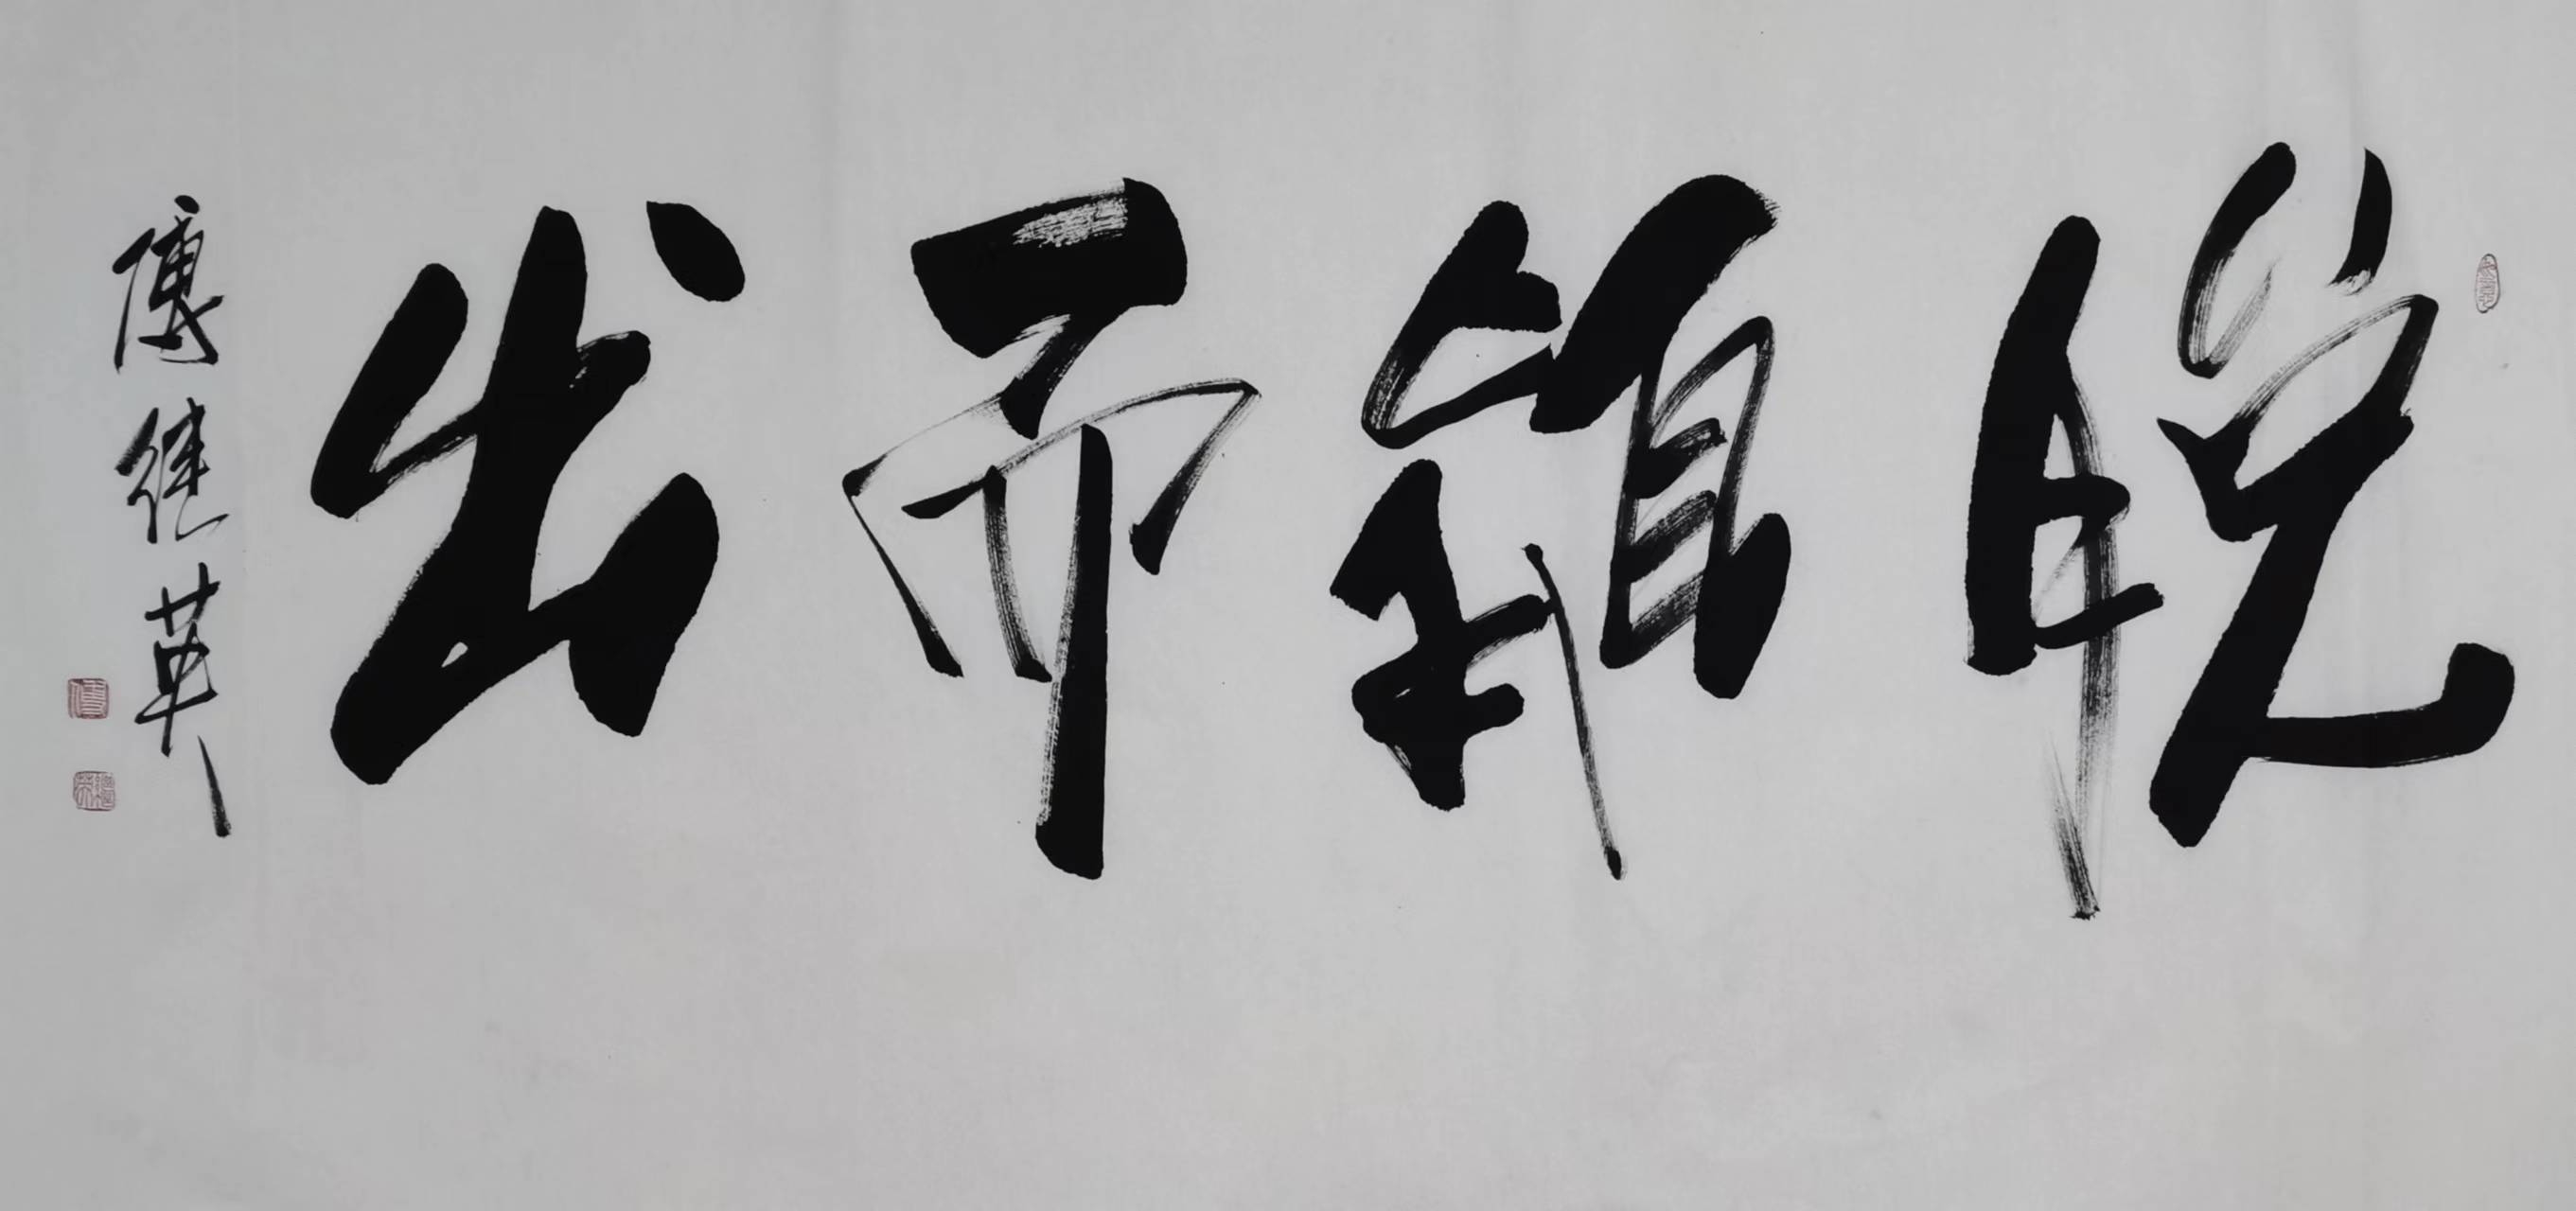 脱颖而出
傅继英